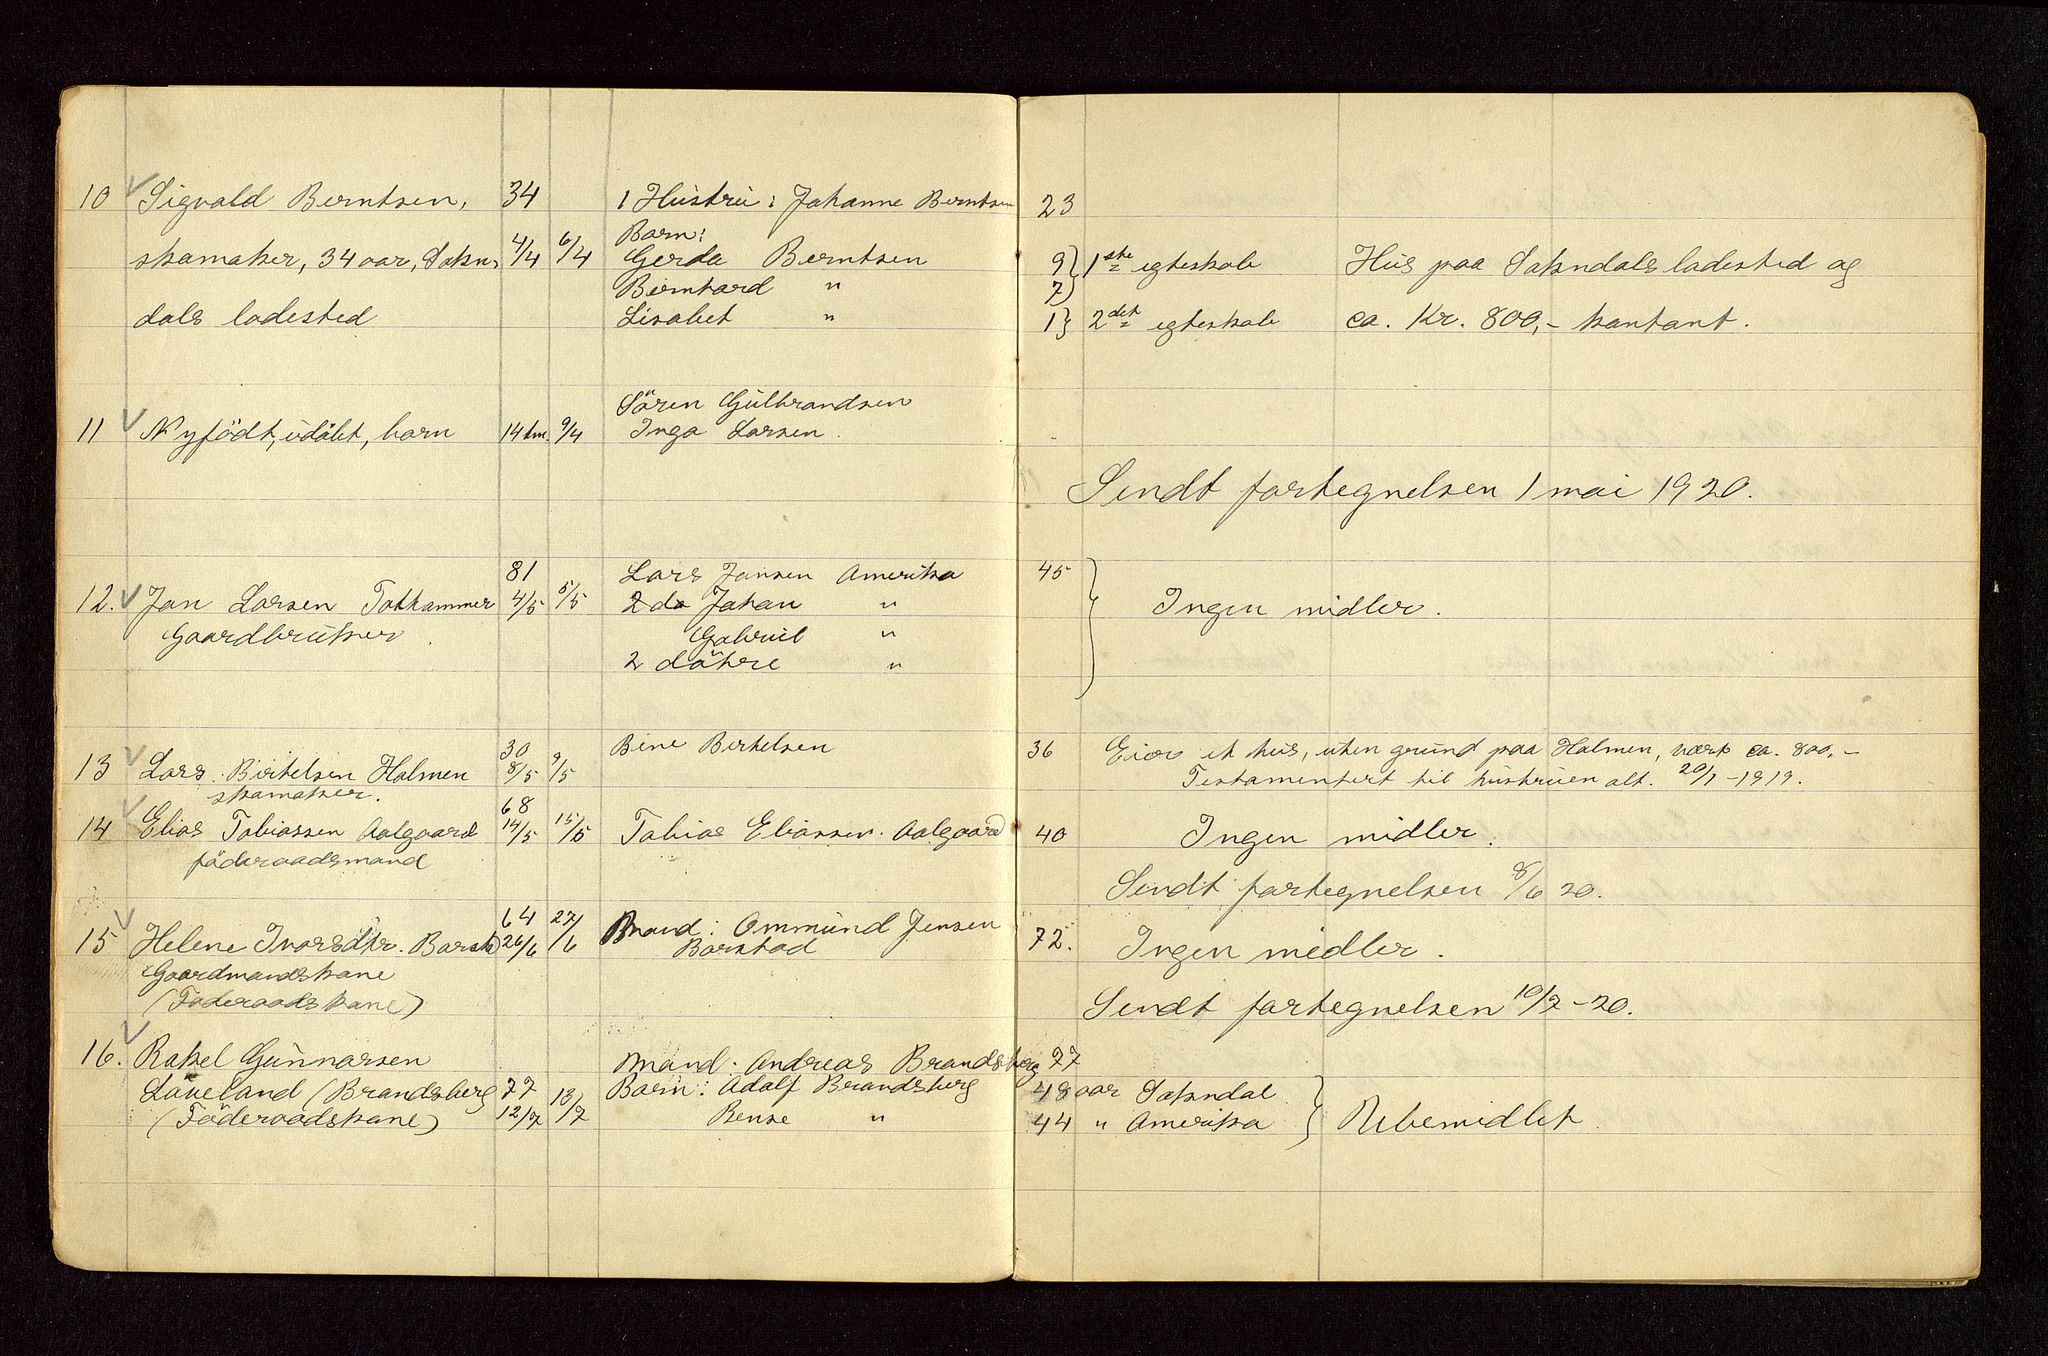 10 Sigvald Berntsen, 34 1 Hustru: Johanne Berntsen 23
Barn:
skomaker, 34 aar, Sokn- 4/4 6/4 Gerda Berntsen 9 } 1ste egteskab Hus paa Sokndals ladested og
Berntard " 7
dals ladested Lisabet " 1 } 2det egteskab ca. Kr. 800,- kontant.
Sören Gulbrandsen
11 Nyfödt, udöbt, barn 14 tm. 9/4 Inga Larsen.
Sendt fortegnelsen 1 mai 1920.
81 Lars Jansen Amerika 45
12. Jan Larsen Tothammer 4/5 5/5 2 do Johan " } Ingen midler.
Gaardbruker. Gabriel "
2 dötre "
30 Bine Bertelsen 36 Eier et hus, uten grund paa Holmen, værd ca. 800,-
13 Lars Bertelsen Holmen 8/5 9/5 Testamentert til hustruen alt. 20/1-1919.
skomaker.
68
14 Elias Tobiassen Aalgaard 14/5 15/5 Tobias Eliassen Aalgaard 40 Ingen midler.
föderaadsmand
Sendt fortegnelsen 8/6 20.
64 27/6 Mand: Ommund Jensen
15 Helene Ivarsdtr. Barstad 26/6 Barstad 72. Ingen midler.
Gaardmandskone
(Foderaadskone)
Sendt fortegnelsen 10/7-20.
16. Rakel Gunnarsen Mand: Andreas Brandsberg 77
Löveland (Brandsberg 77 13/7 Barn: Adolf Brandsberg 48 aar Sokndal
(Föderaadskone) 12/7 Bense " 44 " Amerika } Ubemidlet.